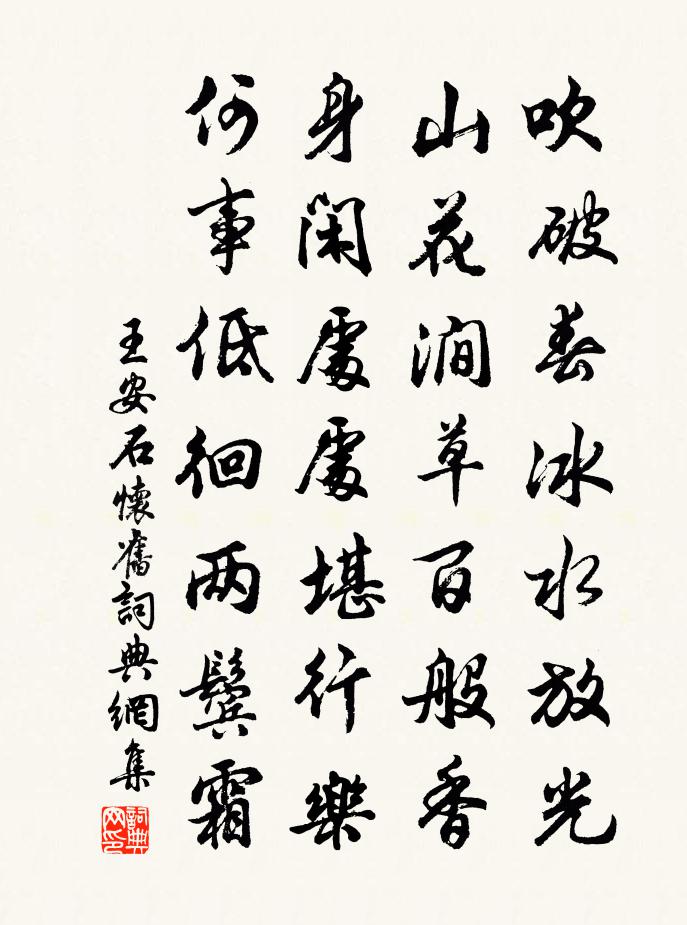 吹破春冰水放光
山花澗草百般香
身閑處處堪行樂
何事低徊两鬢霜
王安石懷舊詞典網集
詞典网印